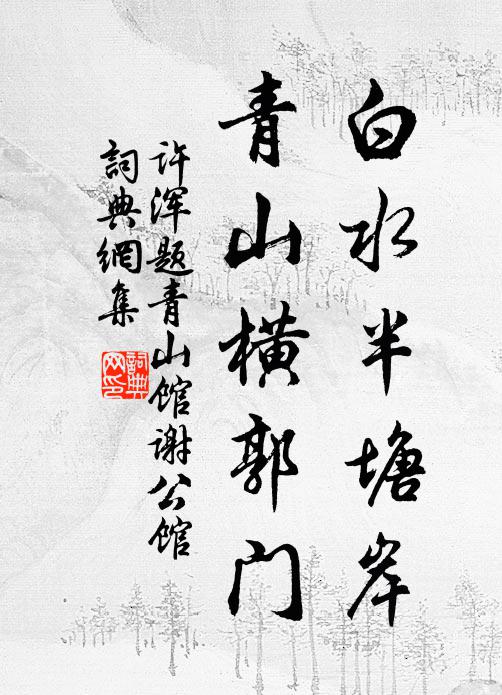 白水半塘岸
青山橫郭门
许浑题青山馆谢公馆
詞典網集
詞典网印